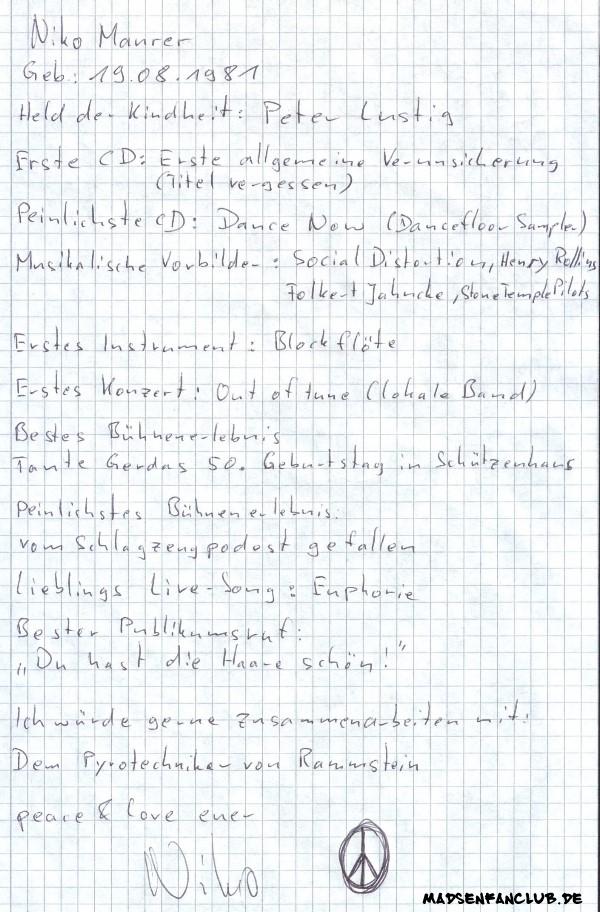 Niko Maurer
Geb.: 19.08.1981
Held der Kindheit: Peter Lustig
Erste CD: Erste allgemeine Verunsicherung
(Titel vergessen)
Peinlichste CD: Dance Now (Dancefloor Sampler)
Musikalische Vorbilder: Social Distortion, Henry Rollins
Folkert Jahncke, Stone Temple Pilots
Erstes Instrument: Blockflöte
Erstes Konzert: Out of tune (lokale Band)
Bestes Bühnenerlebnis
Tante Gerdas 50. Geburtstag in Schützenhaus
Peinlichstes Bühnenerlebnis:
vom Schlagzeugpodest gefallen
Lieblings Live-Song: Euphorie
Bester Publikumsruf:
„Du hast die Haare schön!"
Ich würde gerne zusammenarbeiten mit:
Dem Pyrotechniker von Rammstein
peace & love euer
Niko
MADSENFANCLUB.DE